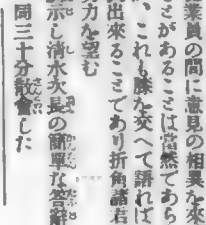 業員の間に意見の相異を來
ことがあることは當然であら
、これも膝を交へて語れば
出來ることであり折角諸君
努力を望む
示し清水次長の簡單な答辭
同三十分散會した